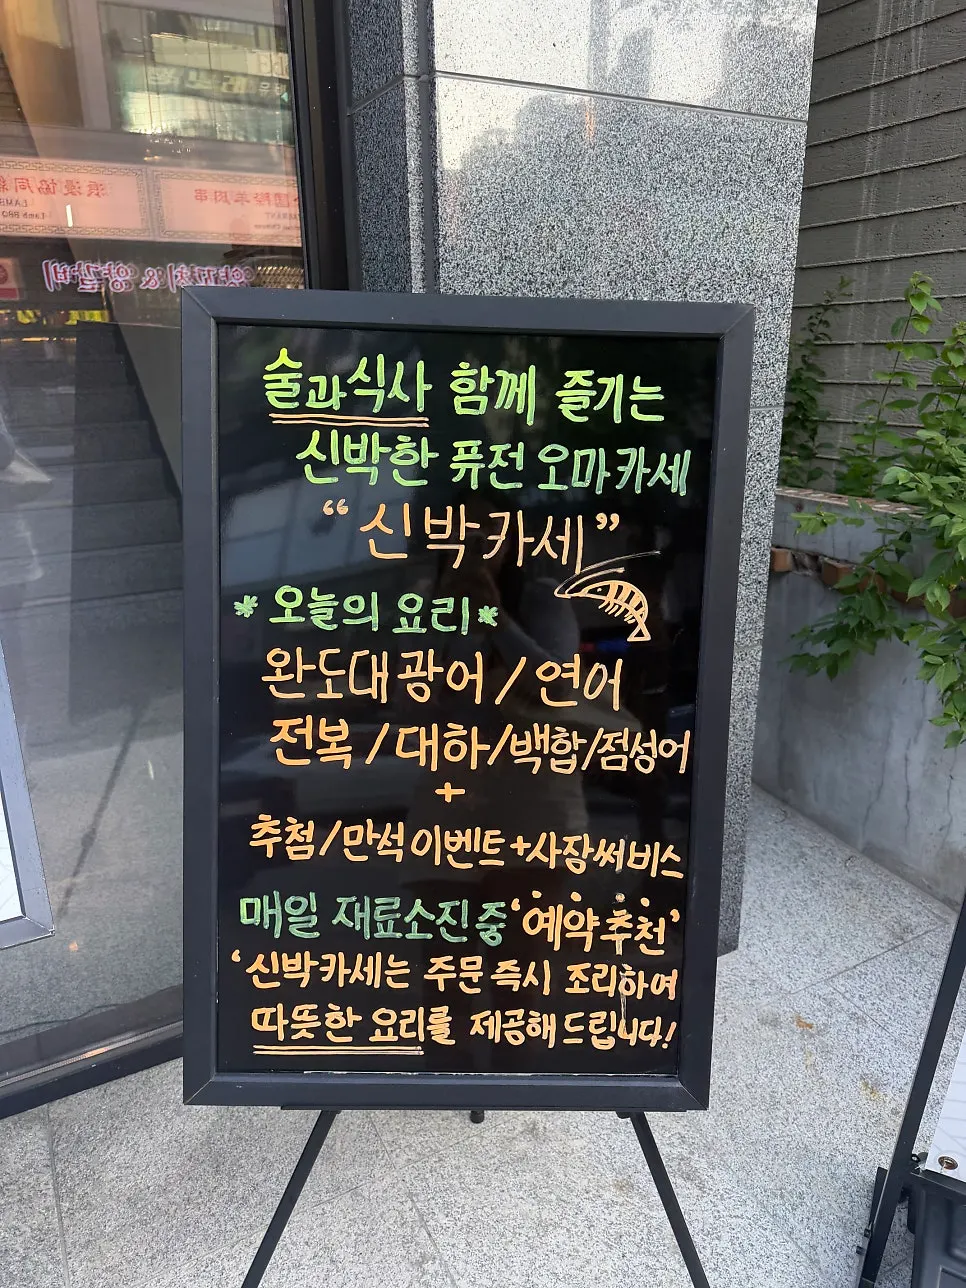 술과식사 함께 즐기는
신박한 퓨전 오마카세
“신박카세”
*오늘의 요리*
완도대광어/연어
전복/대하/백합/점성어
+
추첨/만석이벤트+사장써비스
매일 재료소진중 ‘예약추천’
‘신박카세는 주문 즉시 조리하여
따뜻한 요리를 제공해드립니다!